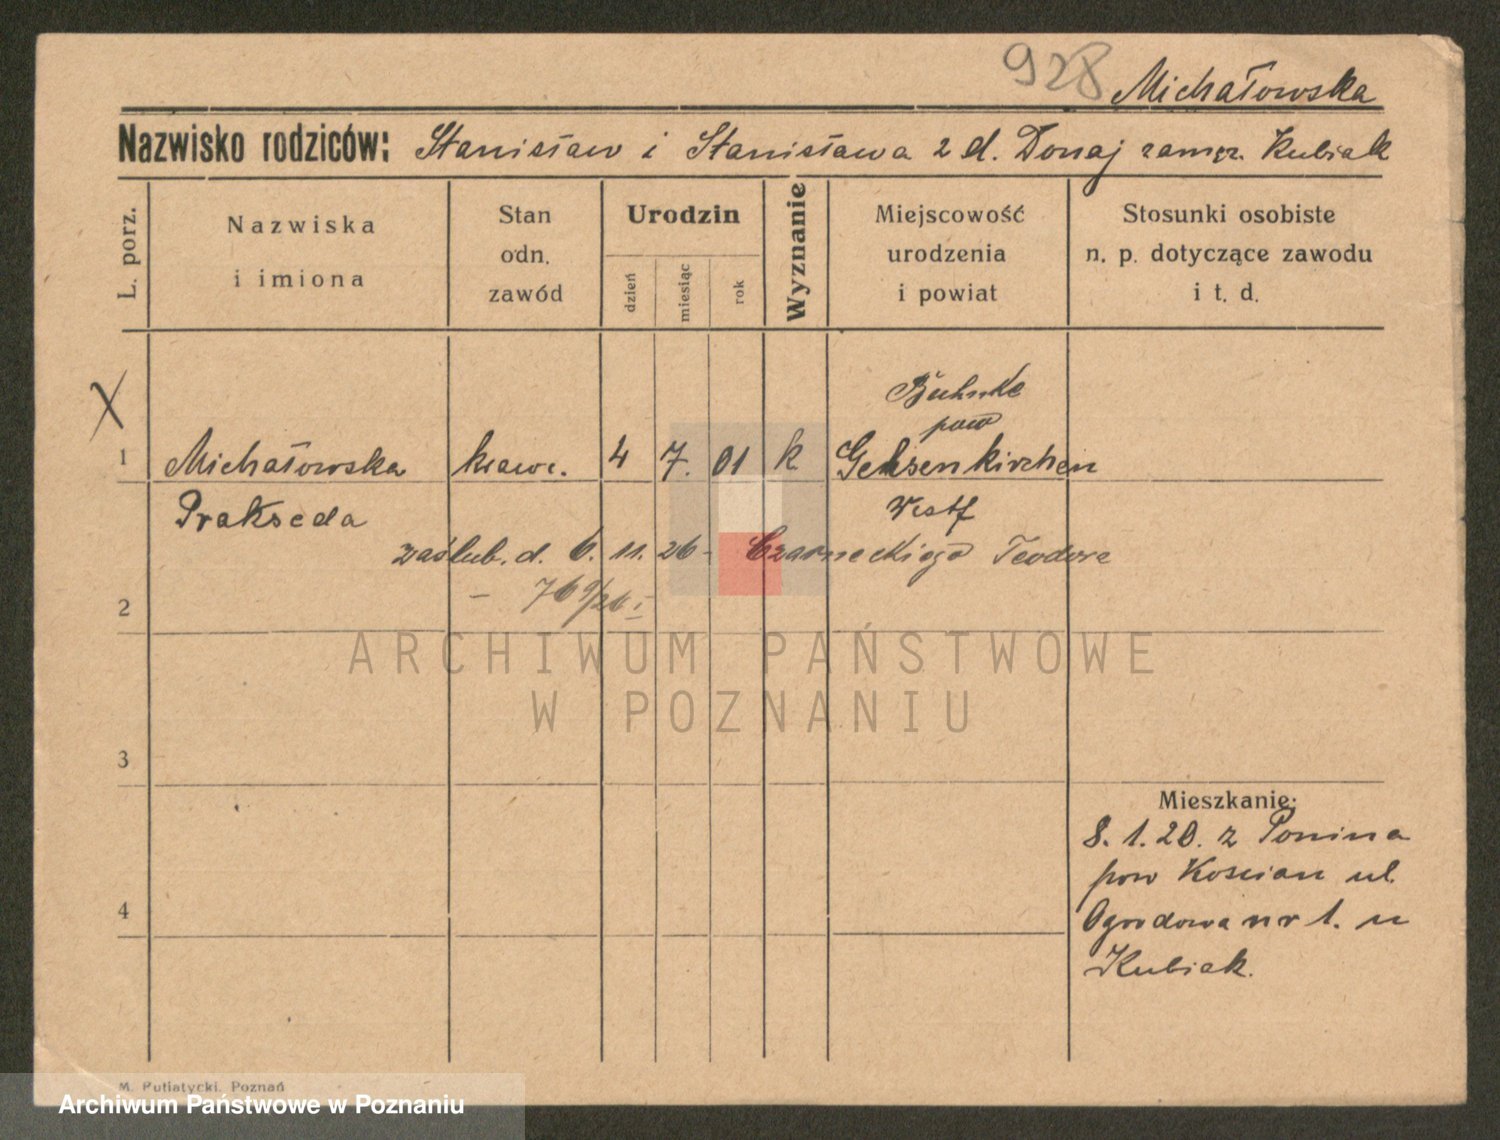 928 Michałowska
Nazwisko rodziców: Stanisław i Stanisława 2 d. Donaj zamęz. Kubiak
L. porz.
Nazwiska
i imiona
Stan
odn.
zawód
Urodzin
dzień
miesiąc
rok
Wyznanie
Miejscowość
urodzenia
i powiat
Stosunki osobiste
n. p. dotyczące zawodu
i t. d.
X
pow
1 Michałowska krawc. 4 7. 01 k Gelsenkirchen
Prakseda Westf
zaślub. d. 6. 11. 26 - Czarneckiego Teodora
2
3
Mieszkanie:
8. 1. 20. z Ponina
pow Koscian ul.
4 Ogrodowa nr 1. u
Kubiak.
ARCHIWUM PAŃSTWOWE
W POZNANIU
M. Putiatycki, Poznań
Archiwum Państwowe w Poznaniu